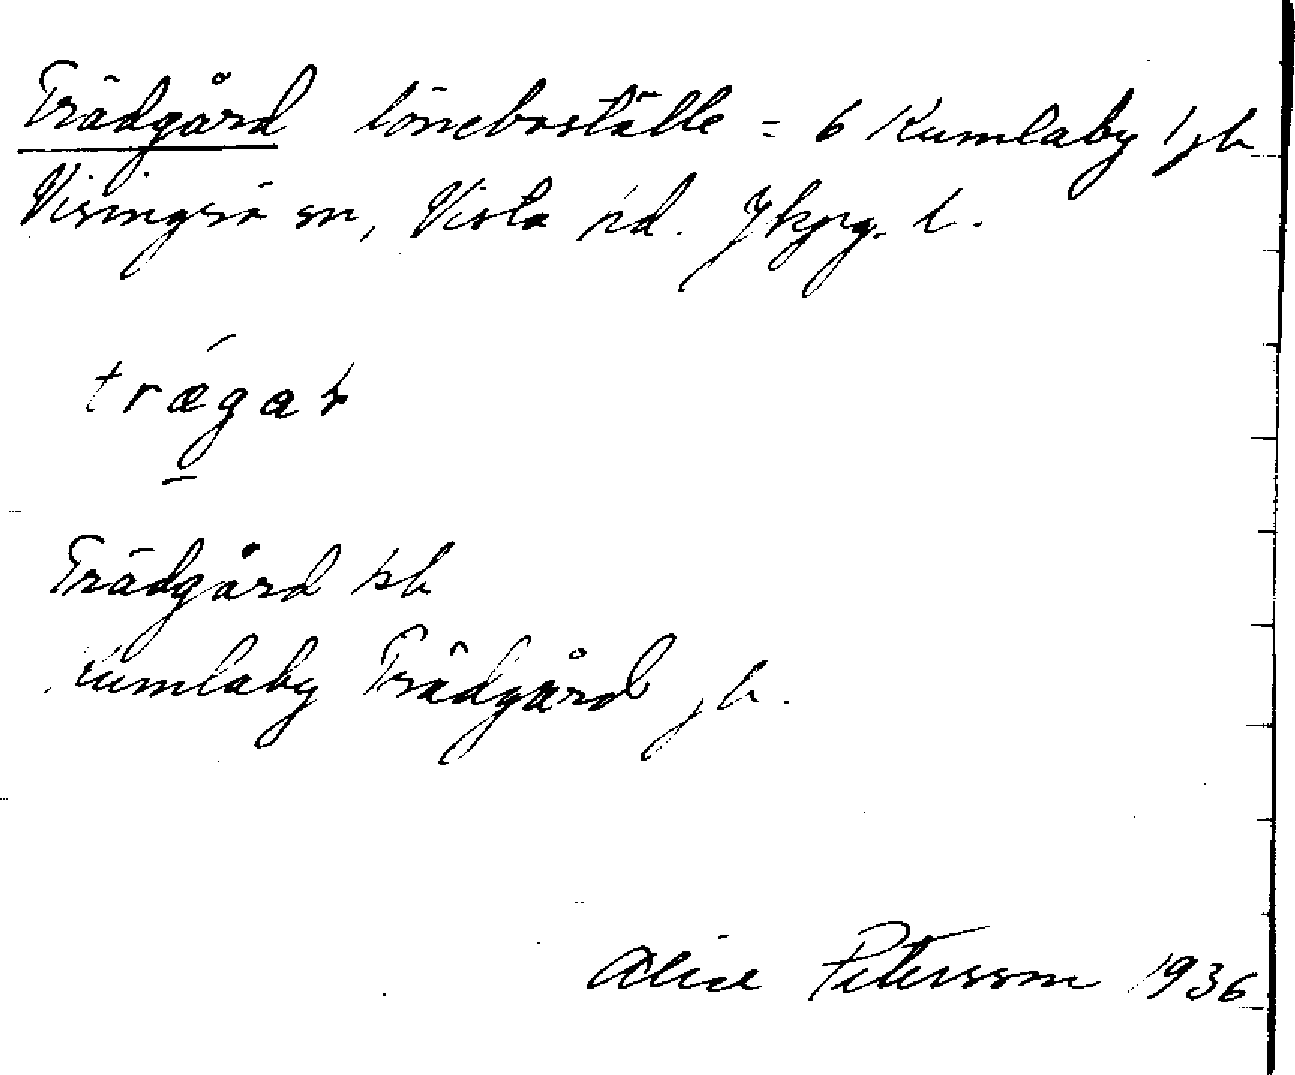 Trädgård löneboställe = 6 Kumlaby 1 jb
Visingsö sn, Vista hd. Jkpg. l.
trægaṛ
Trädgård kb
Kumlaby Trädgård jb.
Alice Petersson 1936